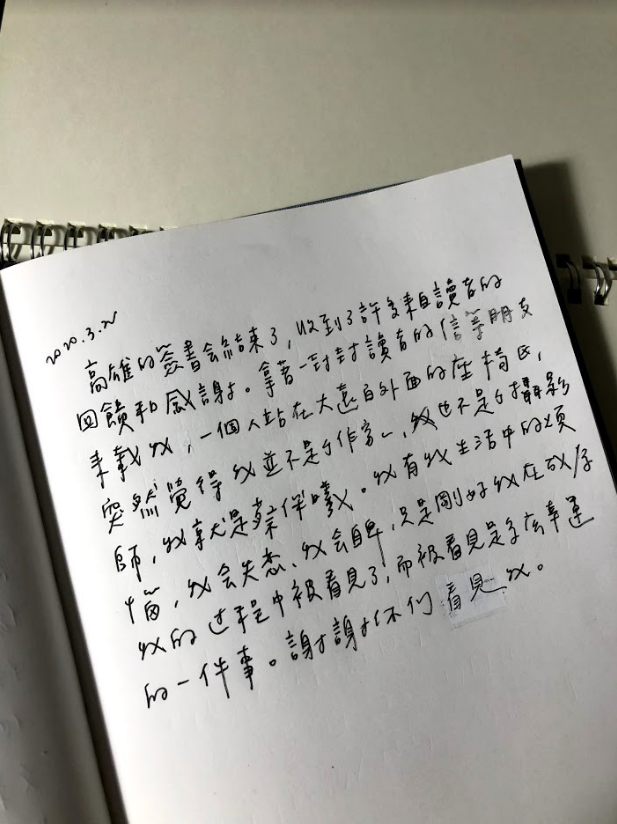 2020.3.22
高雄的簽書會結束了，收到了許多來自讀者的
回饋和感謝。拿著一封封讀者的信等朋友
來載我，一個人站在大遠百外面的座椅區，
突然覺得我並不是個作家，我也不是個攝影
師，我就是蔡保曦。我有我生活中的煩
惱，我會失態、我會自卑，只是剛好我在做
我的過程中被看見了，而被看見是多麼幸運
的一件事。謝謝你們看見我。